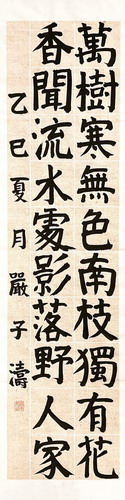 萬樹寒無色南枝獨有花
香聞流水處影落野人家
乙巳夏月嚴子濤